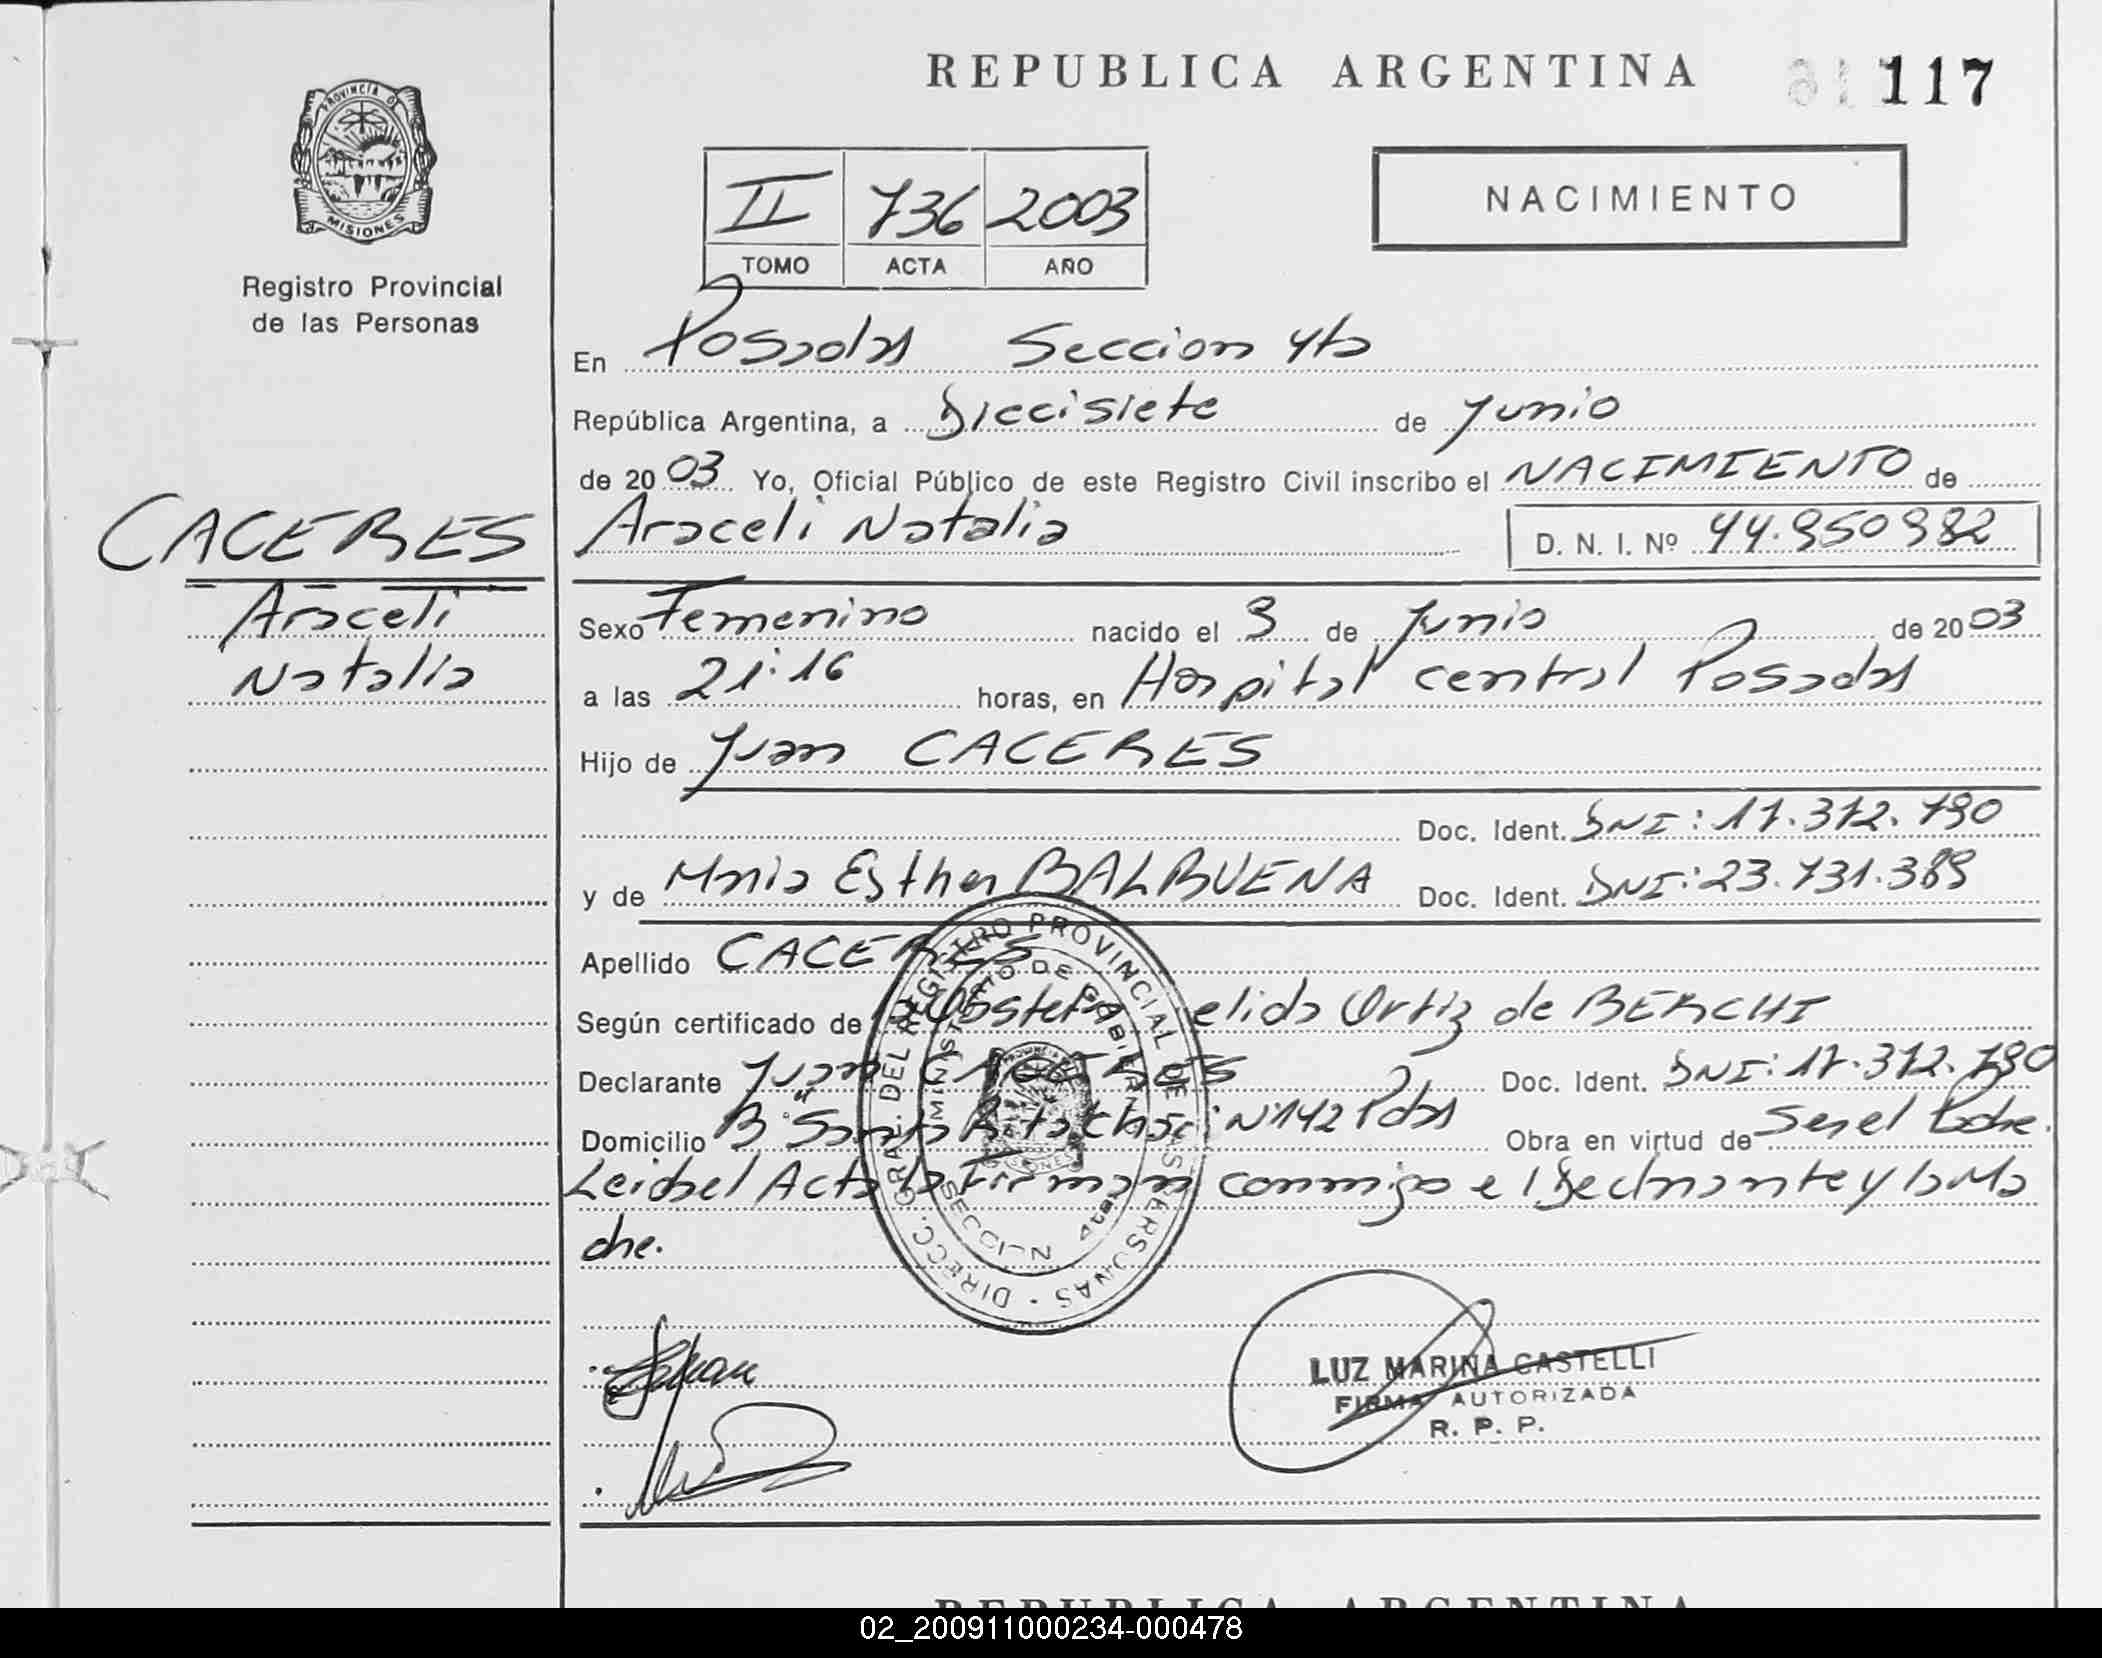 REPUBLICA ARGENTINA 117
PROVINCIA DE
MISIONES
Registro Provincial
de las Personas
II 736 2003
TOMO ACTA AÑO
NACIMIENTO
En Posadas Seccion 4ta
República Argentina, a Diecisiete de Junio
de 2003 Yo, Oficial Público de este Registro Civil inscribo el NACIMIENTO de
CACERES
Araceli
Natalia
Araceli Natalia D. N. I. Nº 44.950982
Sexo Femenino nacido el 9 de Junio de 2003
a las 21:16 horas, en Hospital central Posadas
Hijo de Juan CACERES
Doc. Ident. DNI: 17.372.790
y de Maria Esther BALBUENA Doc. Ident. DNI: 23.731.389
Apellido CACERES
Según certificado de la Obstetra elida Ortiz de BERCHI
Declarante Juan CACERES Doc. Ident. DNI: 17.372.790
Domicilio Bº "Santa Rita Chac: Nº142 Pdas Obra en virtud de Ser el Padre.
Leida el Acta la Firman conmigo e l Declarante y la Ma
dre.
DIRECC. GRAL. DEL REGISTRO PROVINCIAL DE LAS PERSONAS
MINISTERIO DE GOBIERNO
SECCION 4ta
LUZ MARINA CASTELLI
FIRMA AUTORIZADA
R. P. P.
REPUBLICA ARGENTINA
02_200911000234-000478